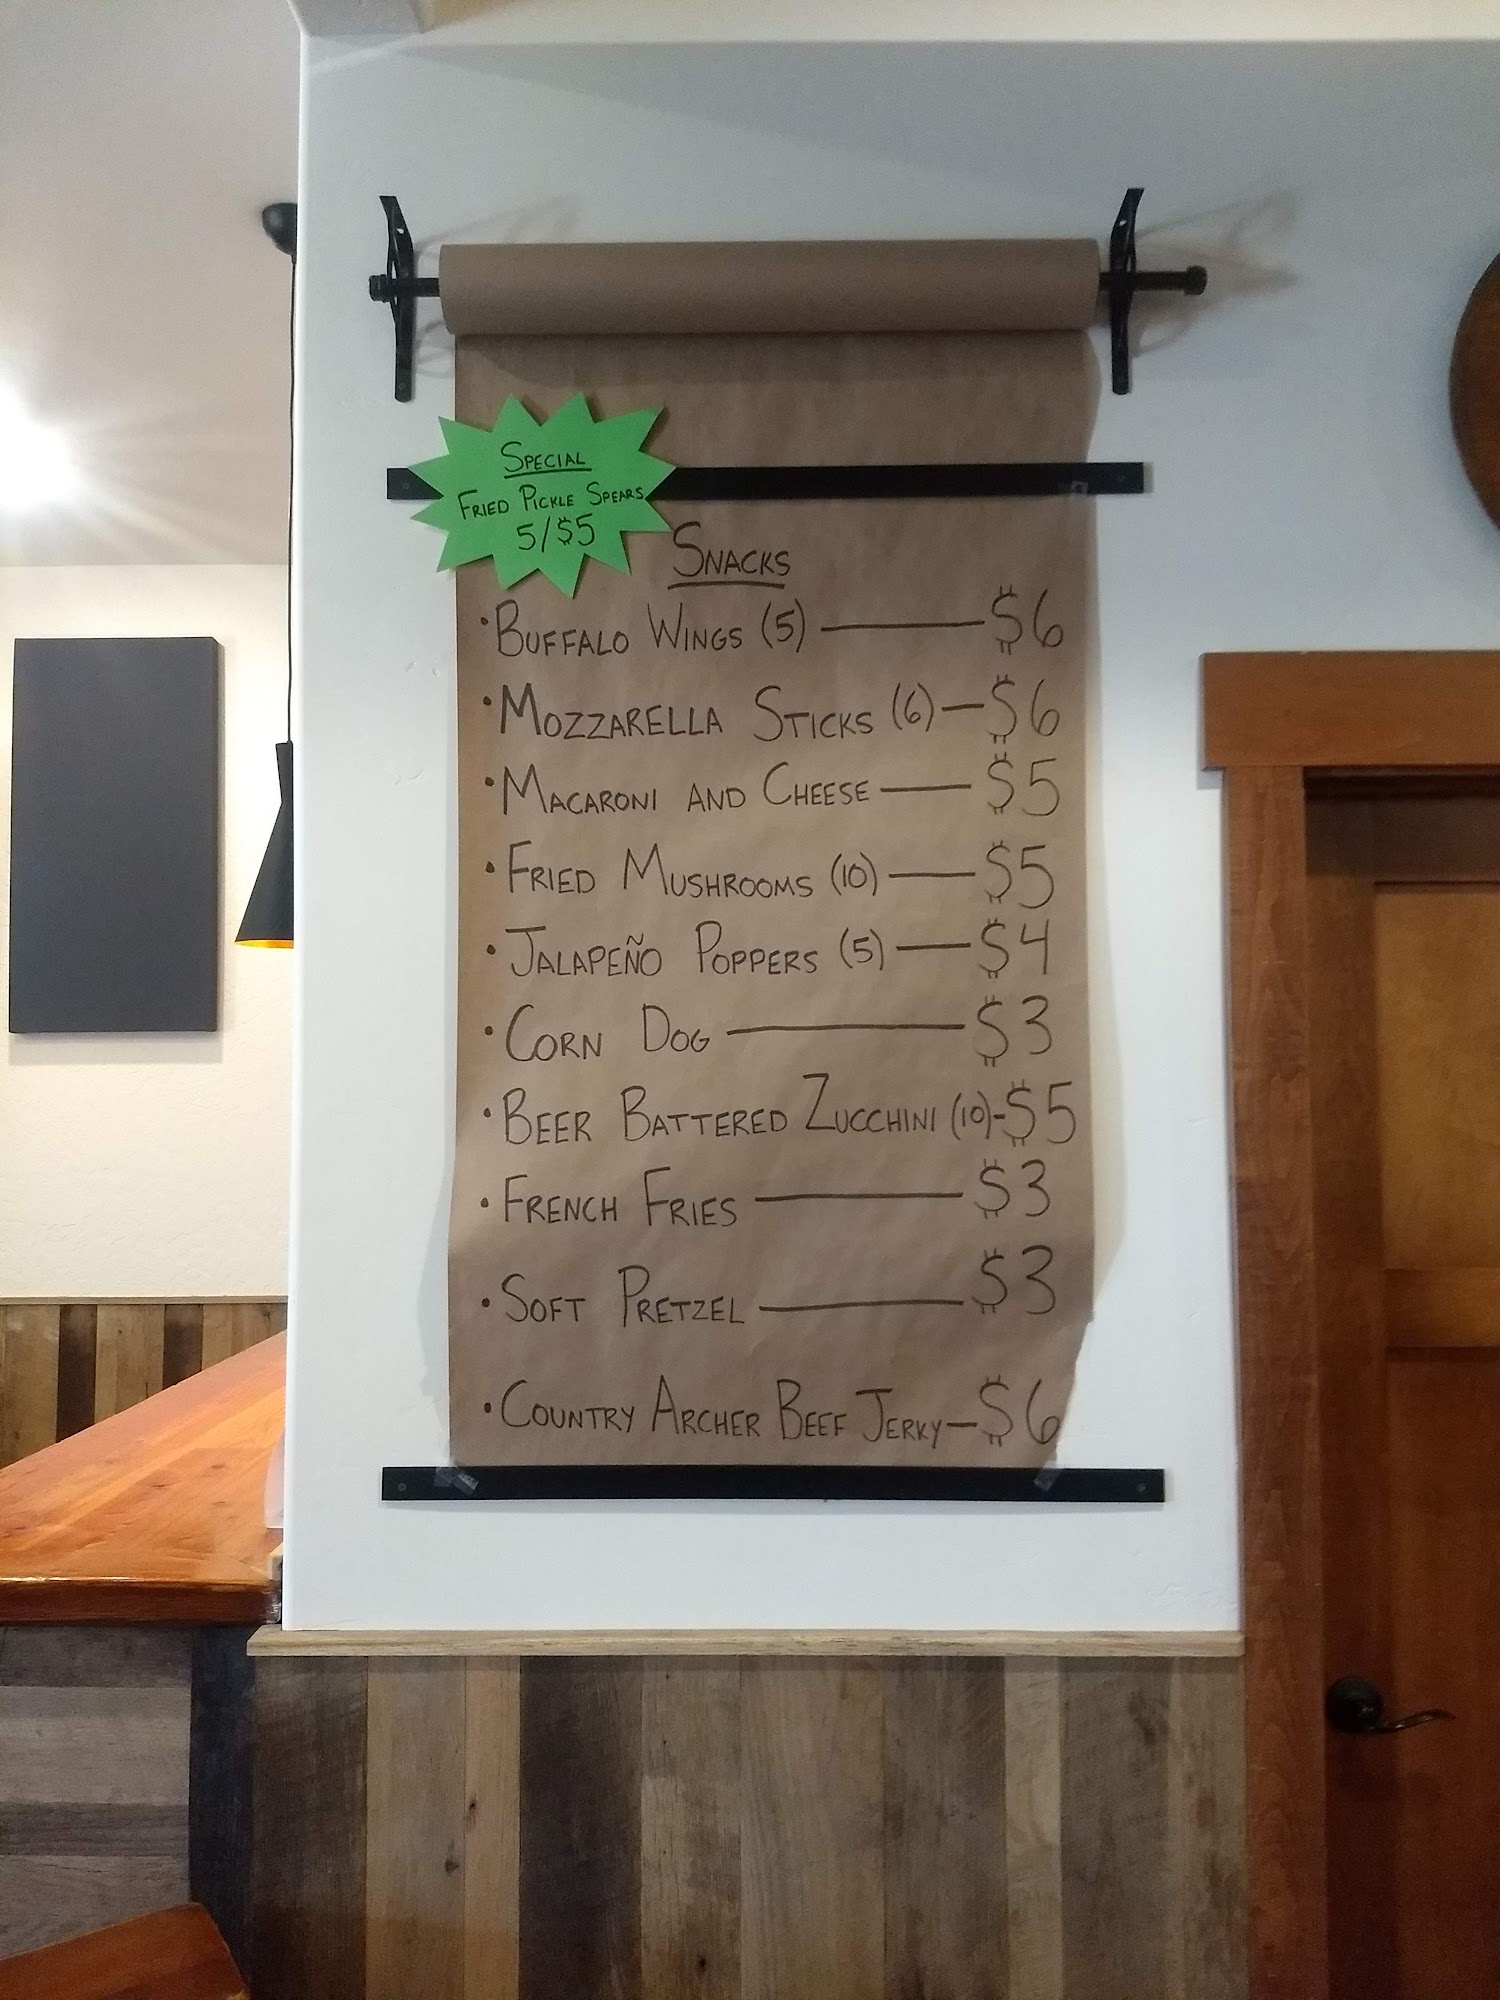 Special
Fried Pickle Spears
5/$5
Snacks
• Buffalo Wings (5) — $6
• Mozzarella Sticks (6) — $6
• Macaroni and Cheese — $5
• Fried Mushrooms (10) — $5
• Jalapeño Poppers (5) — $4
• Corn Dog — $3
• Beer Battered Zucchini (10) - $5
• French Fries — $3
• Soft Pretzel — $3
• Country Archer Beef Jerky — $6